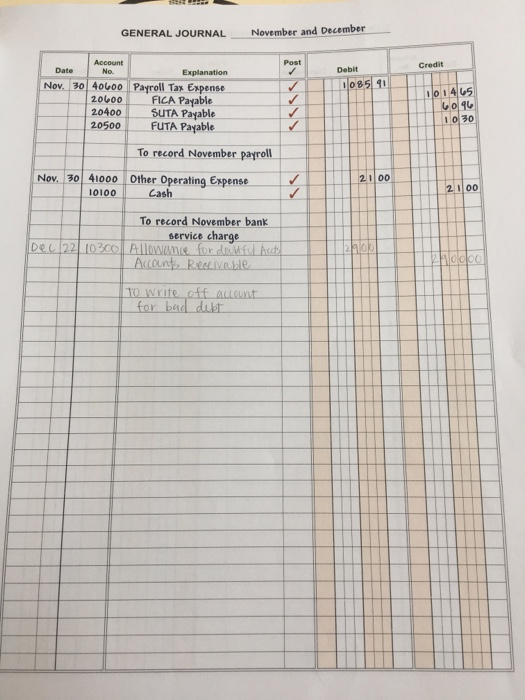 GENERAL JOURNAL November and December
Date Account No. Explanation Post ✓ Debit Credit
Nov. 30 40600 Payroll Tax Expense ✓ 1085 91
20600 FICA Payable ✓ 1014 65
20400 SUTA Payable ✓ 60 96
20500 FUTA Payable ✓ 10 30
To record November payroll
Nov. 30 41000 Other Operating Expense ✓ 21 00
10100 Cash ✓ 21 00
To record November bank
service charge
Dec 22 10300 Allowance for doubtful Accts
Accounts Receivable
To write off account
for bad debt